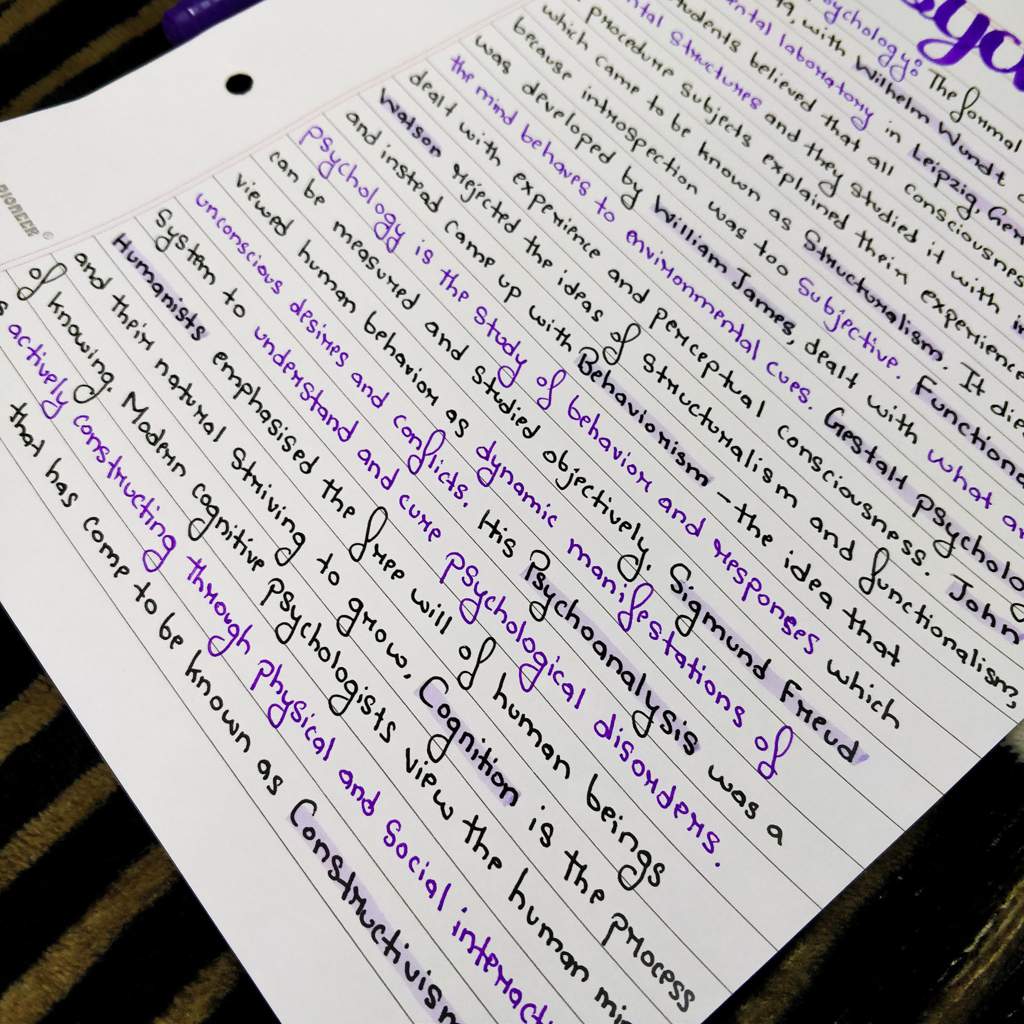 syc
ychology: The formal
with Wilhelm Wundt
ental laboratory in Leipzig, Ger
students believed that all consciousness
ntal structures and they studied it with in
procedure subjects explained their experience
which came to be known as Structuralism. It die
because introspection was too Subjective. Functiona
was developed by William James, dealt with what an
the mind behaves to environmental cues. Gestalt Psycholog
dealt with experience and perceptual consciousness. John
Watson rejected the ideas of structuralism and functionalism,
and instead came up with Behaviorism - the idea that
psychology is the study of behavior and responses which
can be measured and studied objectively. Sigmund Freud
viewed human behavior as dynamic manifestations of
unconscious desires and conflicts. His Psychoanalysis was a
system to understand and cure psychological disorders.
Humanists emphasised the free will of human beings
and their natural striving to grow. Cognition is the process
of knowing. Modern cognitive psychologists view the human min
s actively constructing through physical and social interact
that has come to be known as Constructivism
PIONEER